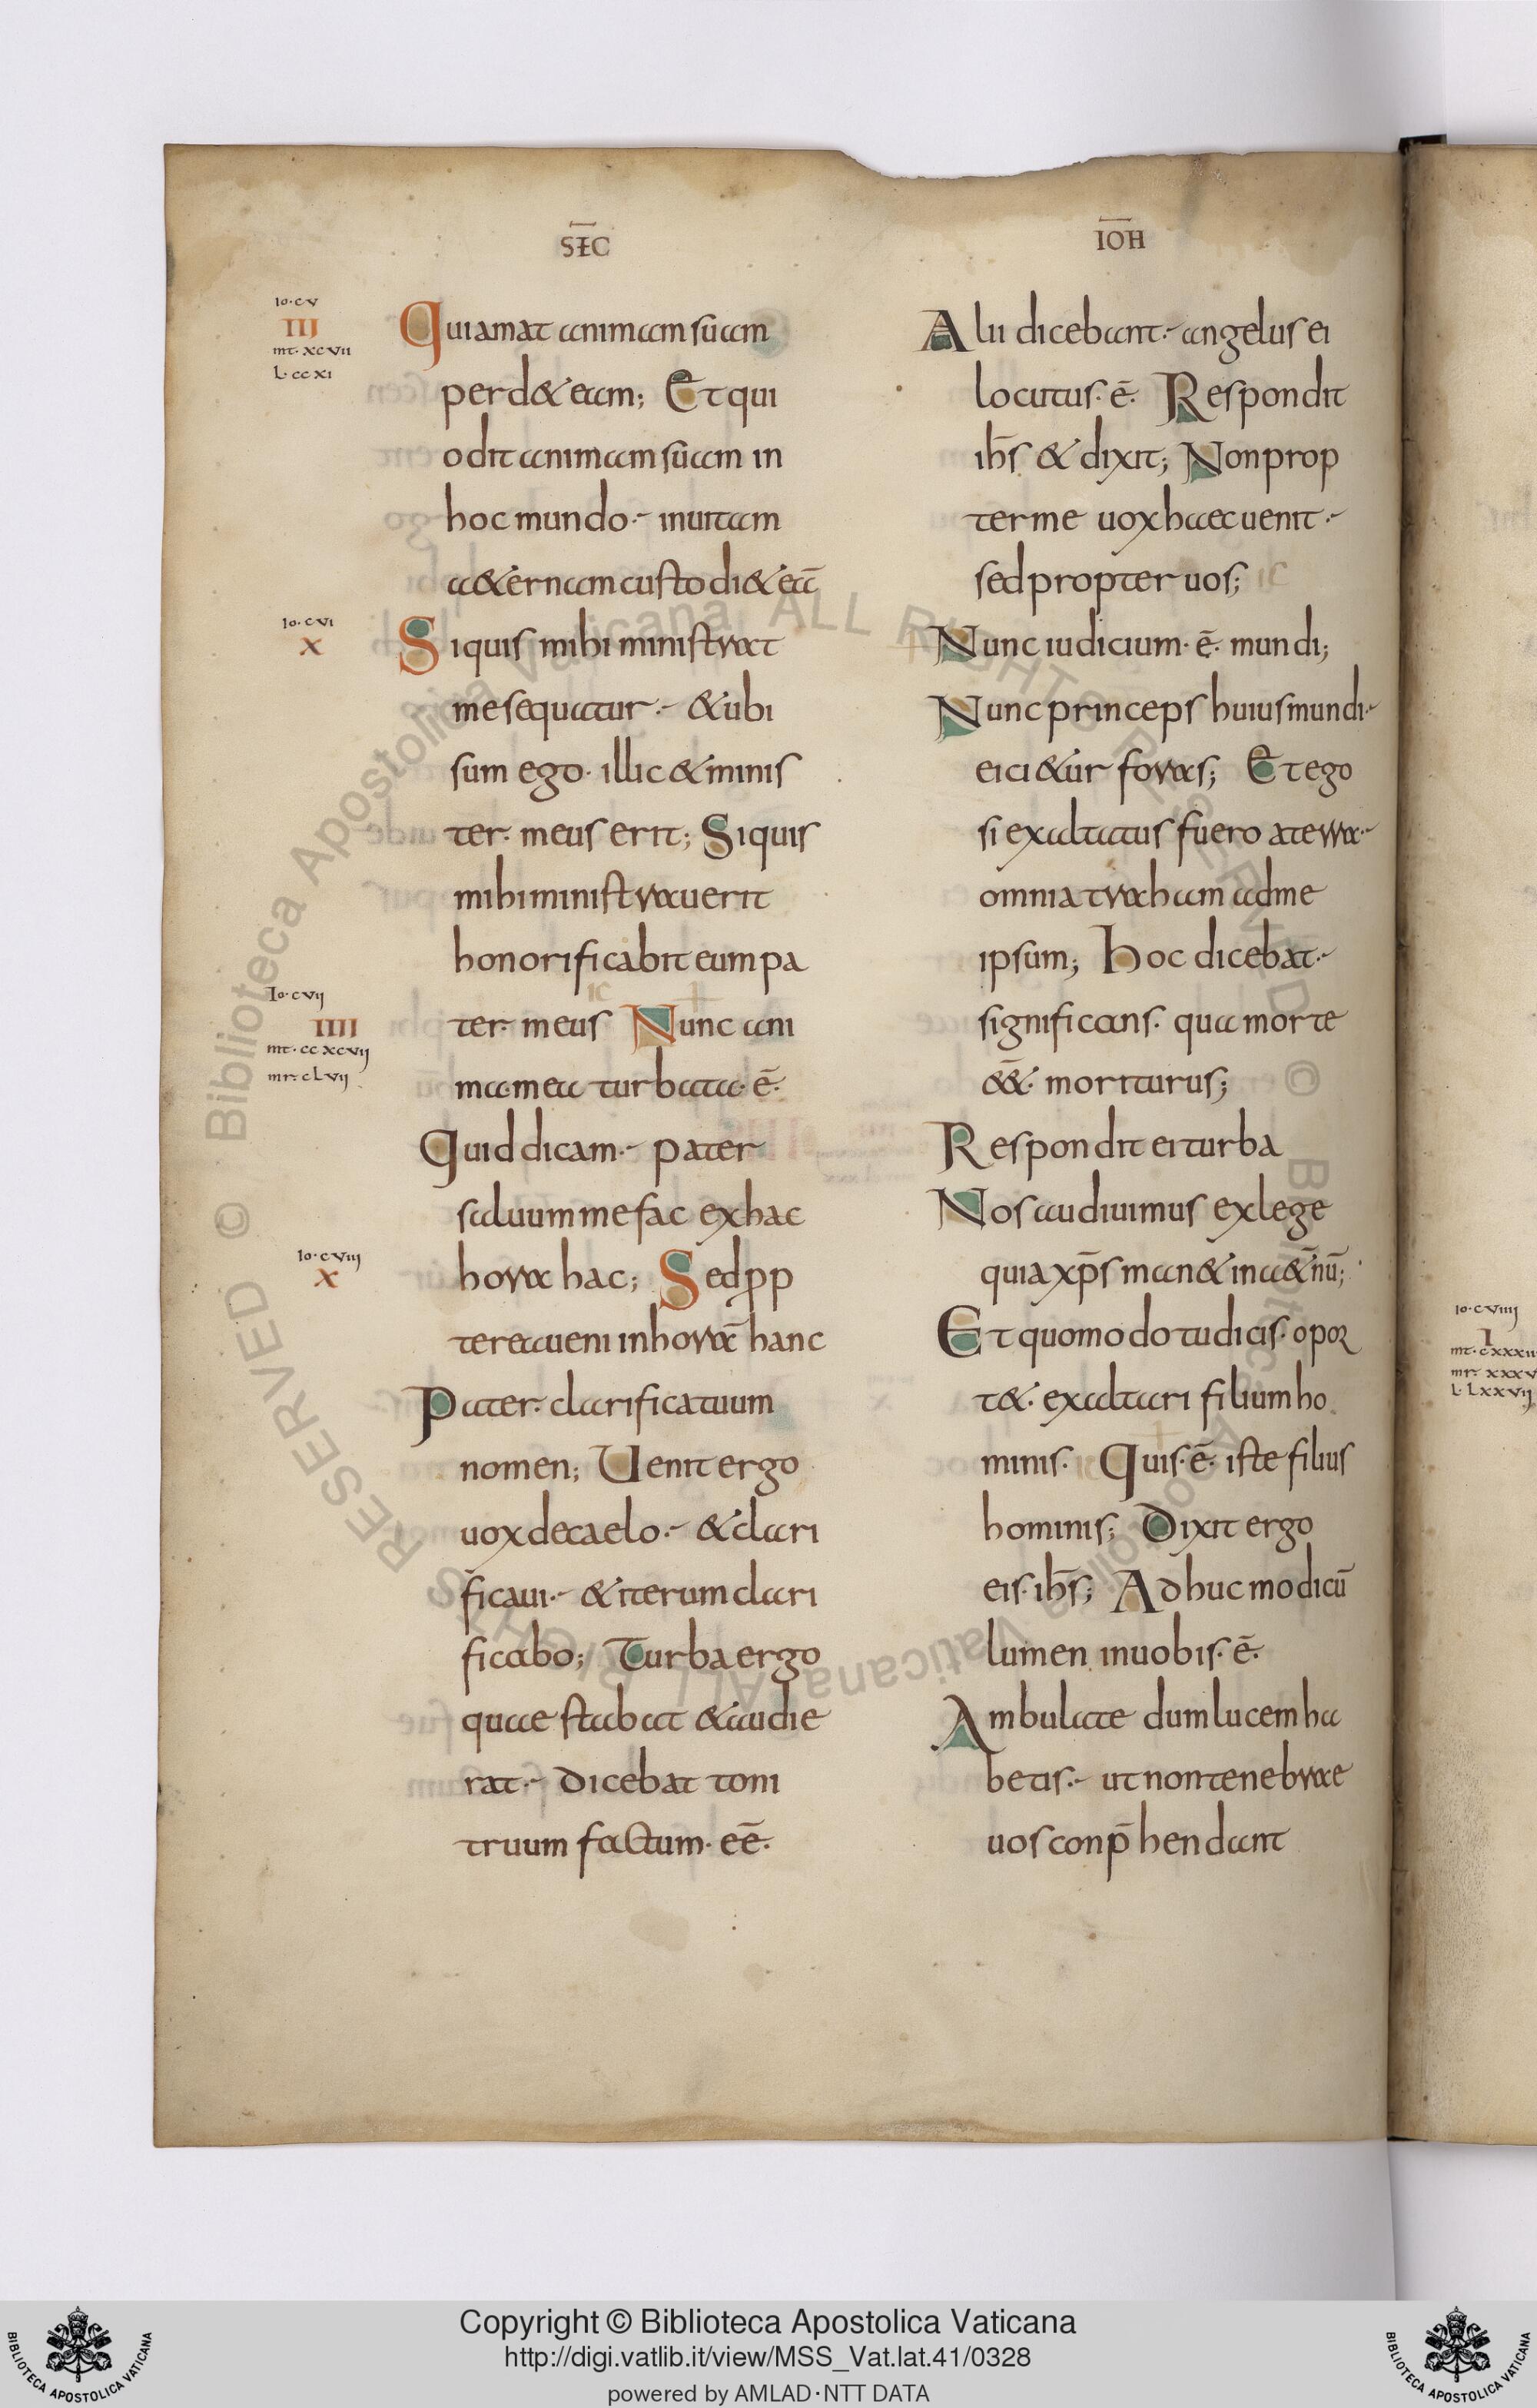 SEC̅
IO̅H
Io·cv
III
mt·xcvii
L·ccxi
Qui amat animam suam
perd& eam; Et qui
odit animam suam in
hoc mundo·- in uitam
a&ernam custodi& ea̅
Io·cvi
X
Si quis mihi ministrat
me sequatur·- & ubi
sum ego· illic & minis
ter· meus erit; Si quis
mihi ministrauerit
honorificabit eum pa
Io·cvii
IIII
mt·ccxcvij
mr·cLvij
ter· meus Nunc ani
ma· mea turbata· e̅·
Quid dicam·- pater
saluum me fac ex hac
Io·cviii
X
hora hac; Sed prop
terea ueni in hora̅ hanc
Pater· clarifica tuum
nomen; Uenit ergo
uox de caelo·- & clari
ficaui·- & iterum clari
ficabo; Turba ergo
quae stabat & audie
rat·- dicebat toni
truum factum· ee̅·
Alii dicebant·- angelus ei
locutus· e̅· Respondit
ih̅s & dixit; Non prop
ter me uox haec uenit·-
sed propter uos;
Nunc iudicium· e̅· mundi;
Nunc princeps huius mundi·-
eici&ur foras; Et ego
si exaltatus fuero a terra·-
omnia traham ad me
ipsum; Hoc dicebat·-
significans· qua morte
&&̅· moriturus;
Respondit ei turba
Nos audiuimus ex lege
quia xp̅s man& in a&̅nu̅;
Et quomodo tu dicis· opor
t&· exaltari filium ho
minis· Quis· e̅· iste filius
hominis; Dixit ergo
eis· ih̅s; Adhuc modicu̅
lumen in uobis· e̅·
Ambulate dum lucem ha
betis·- ut non tenebrae
uos conp̅hendant
Io·cviiii
I
© Biblioteca Apostolica Vaticana ALL RIGHTS RESERVED © Biblioteca Apostolica Vaticana ALL RIGHTS RESERVED
Copyright © Biblioteca Apostolica Vaticana
http://digi.vatlib.it/view/MSS_Vat.lat.41/0328
powered by AMLAD·NTT DATA
BIBLIOTECA APOSTOLICA VATICANA
BIBLIOTECA APOSTOLICA VATICANA